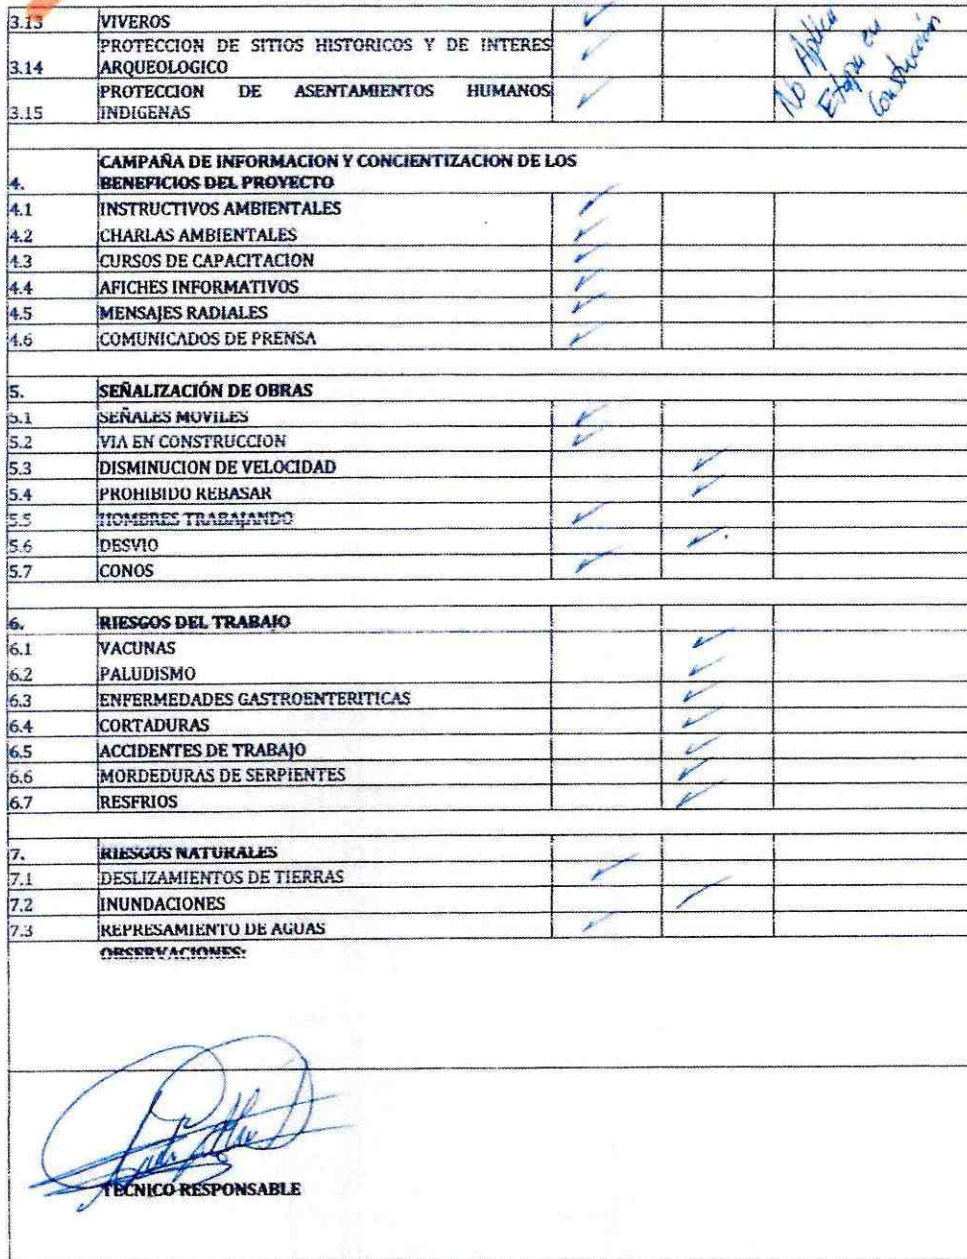 3.13 VIVEROS ✓
PROTECCION DE SITIOS HISTORICOS Y DE INTERES
3.14 ARQUEOLOGICO ✓
PROTECCION DE ASENTAMIENTOS HUMANOS
3.15 INDIGENAS ✓
No Aplica
Etapa en
Construcción
CAMPAÑA DE INFORMACION Y CONCIENTIZACION DE LOS
4. BENEFICIOS DEL PROYECTO
4.1 INSTRUCTIVOS AMBIENTALES ✓
4.2 CHARLAS AMBIENTALES ✓
4.3 CURSOS DE CAPACITACION ✓
4.4 AFICHES INFORMATIVOS ✓
4.5 MENSAJES RADIALES ✓
4.6 COMUNICADOS DE PRENSA ✓
5. SEÑALIZACIÓN DE OBRAS
5.1 SEÑALES MOVILES ✓
5.2 VIA EN CONSTRUCCION ✓
5.3 DISMINUCION DE VELOCIDAD ✓
5.4 PROHIBIDO REBASAR ✓
5.5 HOMBRES TRABAJANDO ✓
5.6 DESVIO ✓
5.7 CONOS ✓
6. RIESGOS DEL TRABAJO
6.1 VACUNAS ✓
6.2 PALUDISMO ✓
6.3 ENFERMEDADES GASTROENTERITICAS ✓
6.4 CORTADURAS ✓
6.5 ACCIDENTES DE TRABAJO ✓
6.6 MORDEDURAS DE SERPIENTES ✓
6.7 RESFRIOS ✓
7. RIESGOS NATURALES
7.1 DESLIZAMIENTOS DE TIERRAS ✓
7.2 INUNDACIONES ✓
7.3 REPRESAMIENTO DE AGUAS ✓
OBSERVACIONES:
TECNICO RESPONSABLE